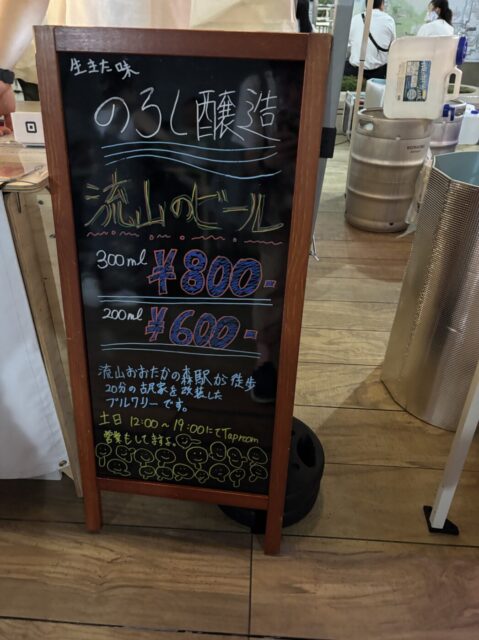 生きた味
のろし醸造
流山のビール
300ml ¥800-
200ml ¥600-
流山おおたかの森駅から徒歩
20分の古民家を改装した
ブルワリーです。
土日 12:00〜19:00にてTaproom
営業もしてますよ